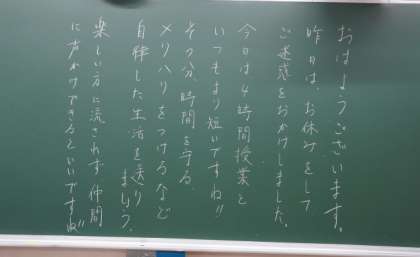 おはようございます。
昨日は、お休みをして
ご迷惑をおかけしました。
今日は4時間授業と
いつもより短いですね!!
その分、時間を守る、
メリハリをつけるなど
自律した生活を送り
ましょう。
楽しい方に流されず仲間
に声かけできるといいですね!!